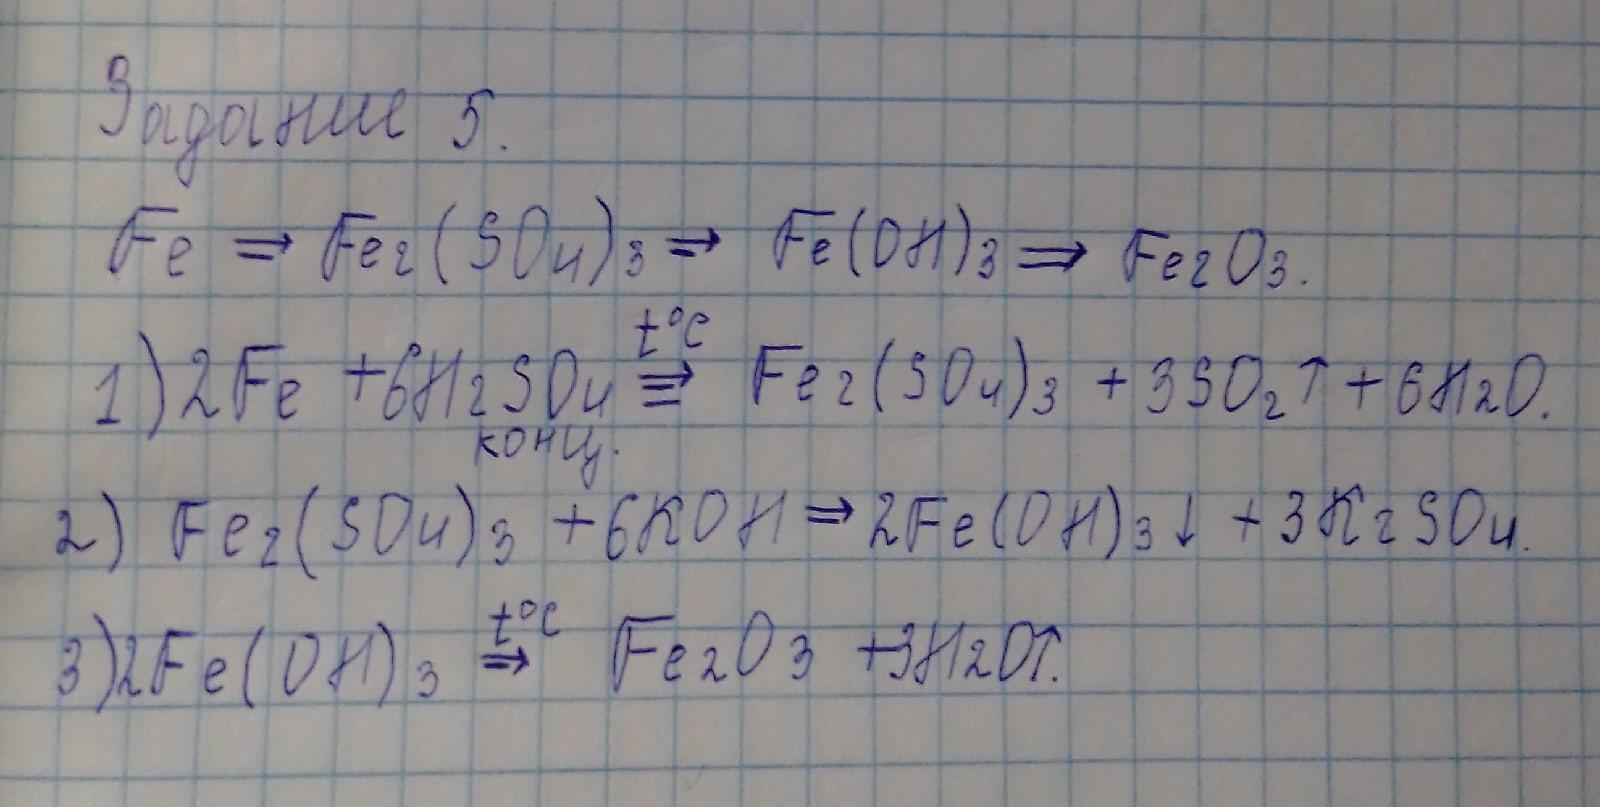 Задание 5.
Fe ⇒ Fe2(SO4)3 ⇒ Fe(OH)3 ⇒ Fe2O3.
1) 2Fe + 6H2SO4 конц. t°C ⇒ Fe2(SO4)3 + 3SO2↑ + 6H2O.
2) Fe2(SO4)3 + 6KOH ⇒ 2Fe(OH)3↓ + 3K2SO4.
3) 2Fe(OH)3 t°C ⇒ Fe2O3 + 3H2O↑.